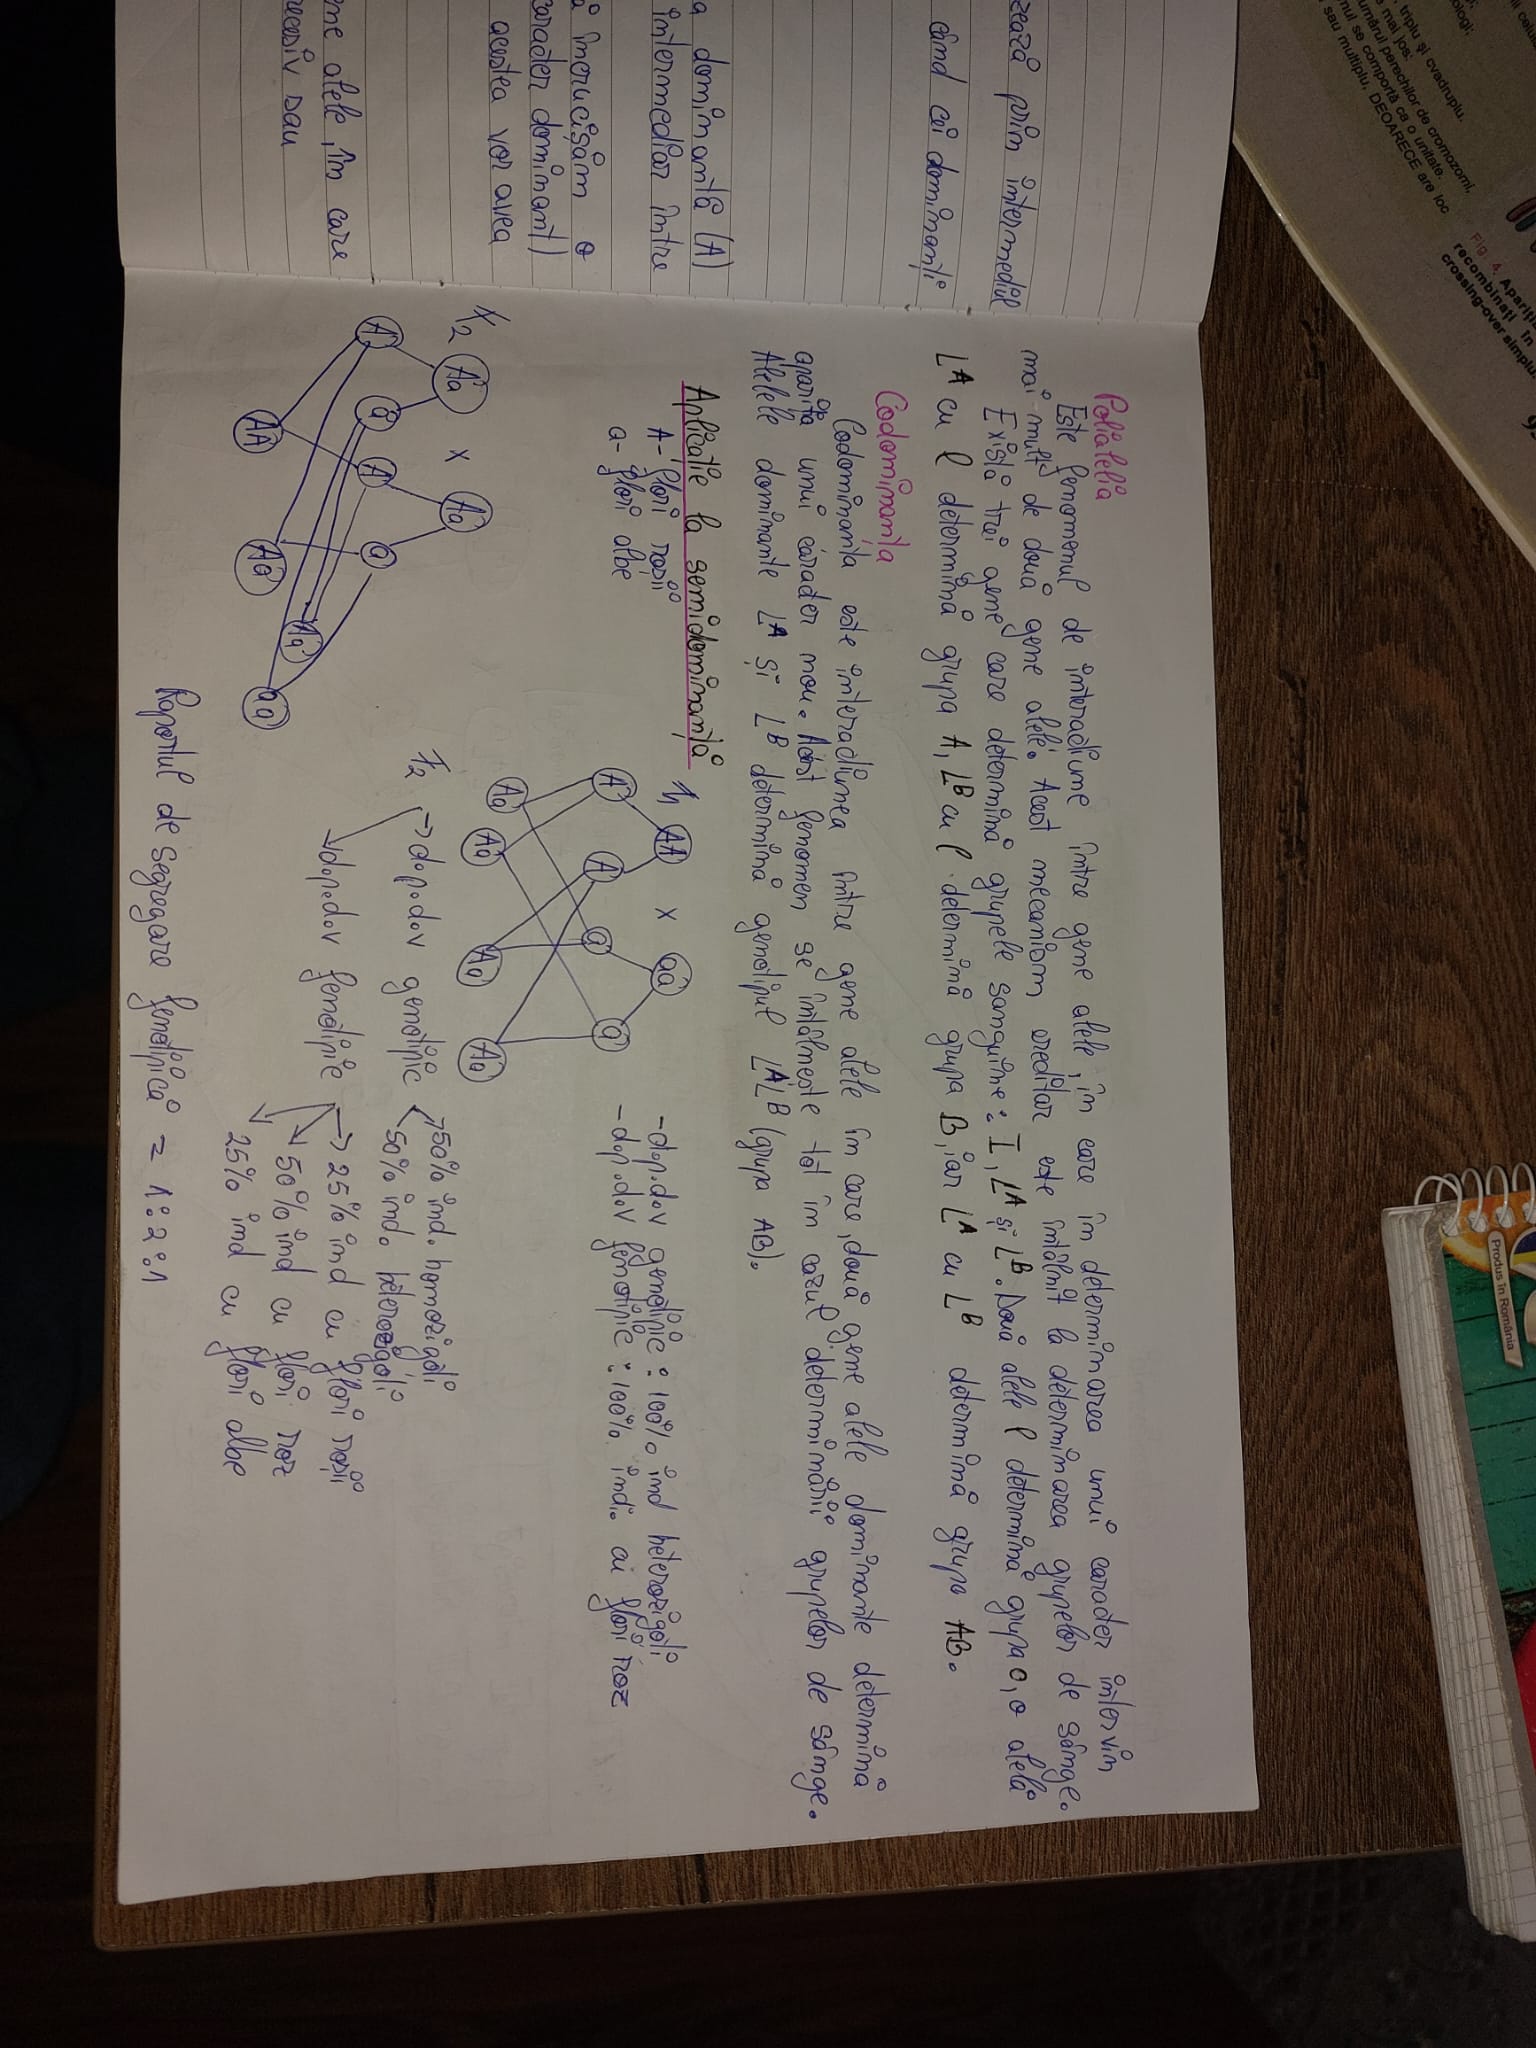 Fig. 4. Apariția
recombinați în
crossing-over simplu.
triplu și cvadruplu.
mai jos:
umărul perechilor de cromozomi,
nul se comportă ca o unitate.
sau multiplu, DEOARECE are loc
Produs în România
zează prin intermediul
când cei dominanți
a dominantă (A)
intermediar între
încrucișăm o
caracter dominant)
acestea vor avea
me alele, în care
recesiv sau
Polialelia
Este fenomenul de interacțiune între gene alele, în care în determinarea unui caracter intervin
mai mult de două gene alele. Acest mecanism ereditar este întâlnit la determinarea grupelor de sânge.
Există trei gene care determină grupele sanguine: I, L^A și L^B. Două alele l determină grupa O, o alelă
L^A cu l determină grupa A, L^B cu l determină grupa B, iar L^A cu L^B determină grupa AB.
Codominanța
Codominanța este interacțiunea între gene alele în care, două gene alele dominante determină
apariția unui caracter nou. Acest fenomen se întâlnește tot în cazul determinării grupelor de sânge.
Alelele dominante L^A și L^B determină genotipul L^A L^B (grupa AB).
Aplicație la semidominanță
A- flori roșii
a- flori albe
F1 AA x aa
A A a a
Aa Aa Aa Aa
-d.p.d.v genotipic: 100% ind heterozigoți
-d.p.d.v fenotipic: 100% ind. cu flori roz
F2 Aa x Aa
A a A a
AA Aa Aa aa
F2 → d.p.d.v genotipic
50% ind. homozigoți
50% ind. heterozigoți
d.p.d.v fenotipic → 25% ind cu flori roșii
50% ind cu flori roz
25% ind cu flori albe
Raportul de segregare fenotipică = 1:2:1